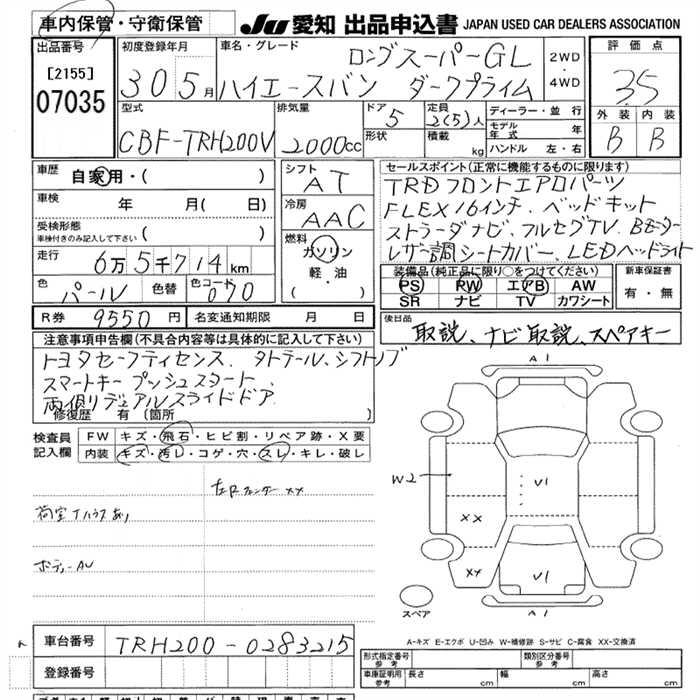 車内保管・守衛保管
JU 愛知 出品申込書 JAPAN USED CAR DEALERS ASSOCIATION
出品番号
[2155]
07035
初度登録年月
30 5月
車名・グレード
ロングスーパーGL
ハイエースバン ダークプライム
2WD
・
4WD
評価点
3.5
外装 内装
B B
型式
CBF-TRH200V
排気量
2000cc
ドア
5
形状
定員
2(5)人
積載
kg
ディーラー・並行
モデル年式 年
ハンドル 左・右
車歴
自家用・( )
車検
年 月( 日)
受検形態
車検付きのみ記入して下さい ( )
走行
6万5千714km
色
パール
色替
色コード
070
シフト
AT
冷房
AAC
燃料
ガソリン
軽・油
( )
セールスポイント(正常に機能するものに限ります)
TRDフロントエアロパーツ
FLEX16インチ、ベッドキット
ストラーダナビ、フルセグTV、Bモーター
レザー調シートカバー、LEDヘッドライト
装備品(純正品に限り○をつけてください)
PS RW エアB AW
SR ナビ TV カワシート
新車保証書
有・無
R券 9550円
名変通知期限 月 日
後日品
取説、ナビ取説、スペアキー
注意事項申告欄(不具合内容等は具体的に記入して下さい)
トヨタセーフティセンス、タトラール、シフトノブ
スマートキー プッシュスタート、
両側リデュアルスライドドア
修復歴 有 〔箇所 〕
検査員
記入欄
FW キズ・飛石・ヒビ割・リペア跡・X要
内装 キズ・汚レ・コゲ・穴・スレ・キレ・破レ
左Rフェンダー XX
荷室イハウスあり
ボディーAU
A1
W2
V1
XX
XX
V1
A1
スペア
A-キズ E-エクボ U-凹み W-補修跡 S-サビ C-腐食 XX-交換済
車台番号 TRH200-0283215
登録番号
形式指定番号
参考
類別区分番号
参考
車庫証明用
参考
長さ cm
幅 cm
高さ cm